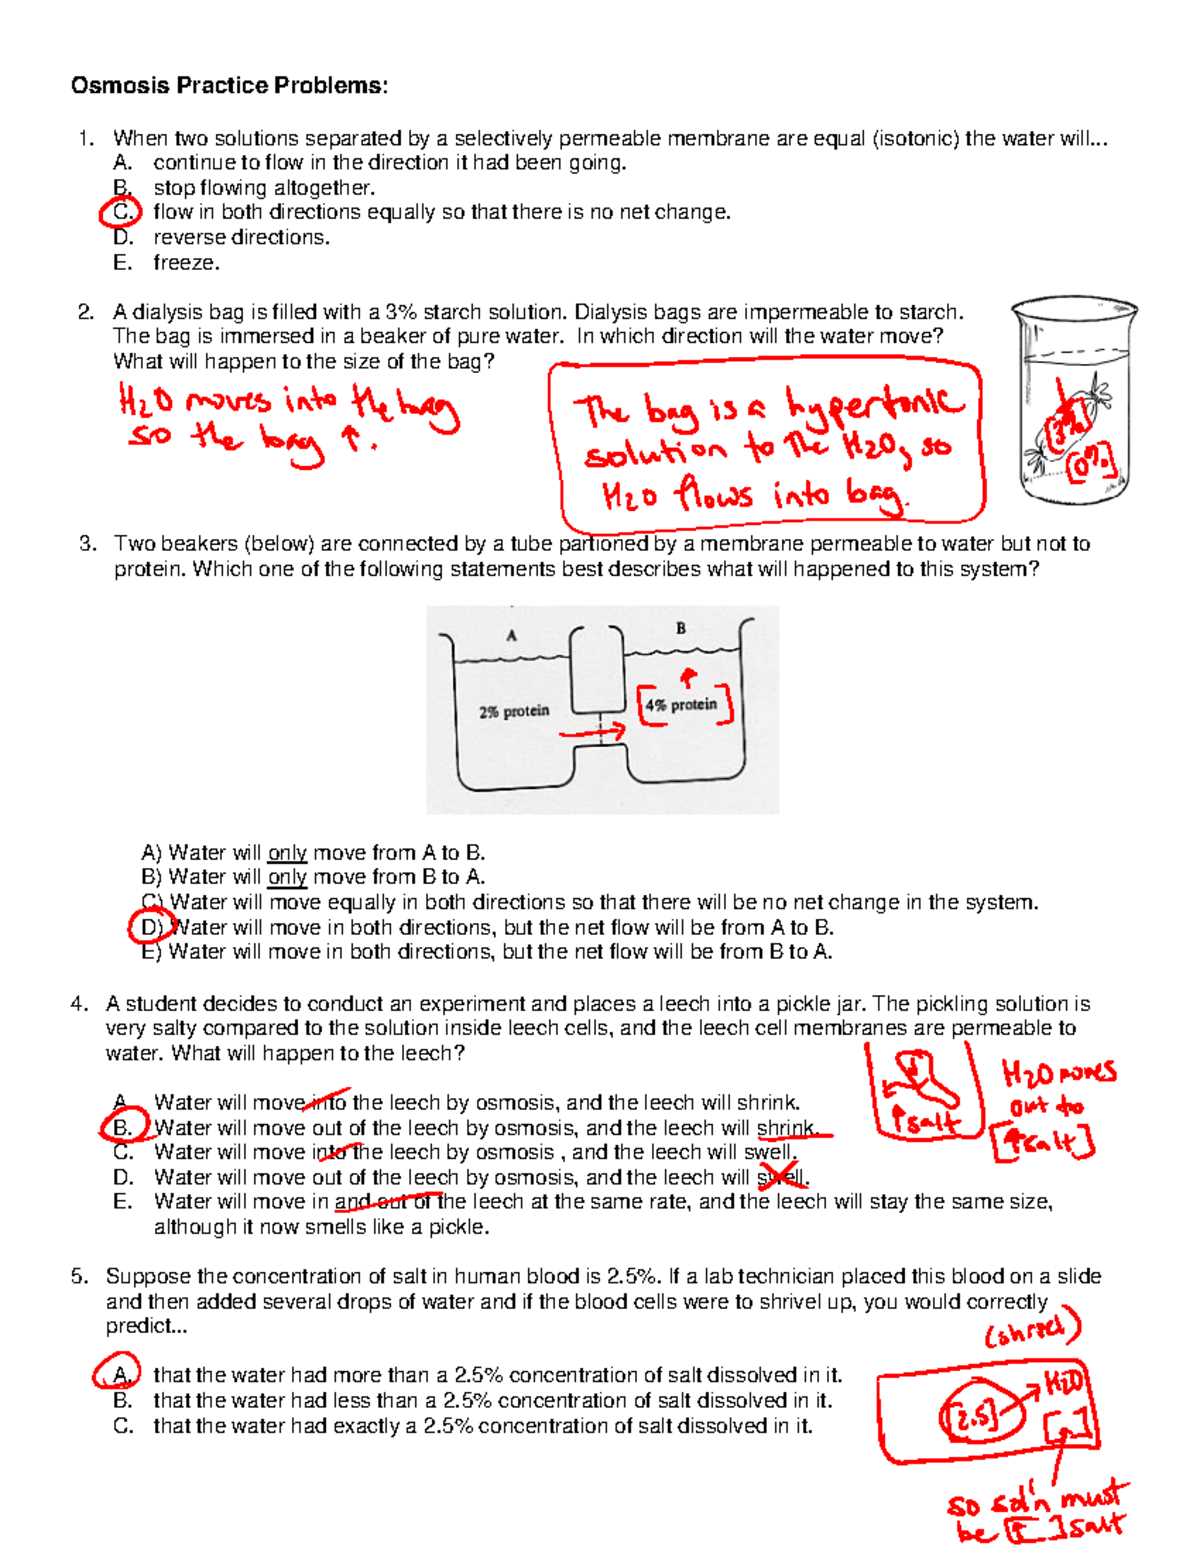 Osmosis Practice Problems:
1. When two solutions separated by a selectively permeable membrane are equal (isotonic) the water will...
A. continue to flow in the direction it had been going.
B. stop flowing altogether.
C. flow in both directions equally so that there is no net change.
D. reverse directions.
E. freeze.
2. A dialysis bag is filled with a 3% starch solution. Dialysis bags are impermeable to starch.
The bag is immersed in a beaker of pure water. In which direction will the water move?
What will happen to the size of the bag?
H2O moves into the bag
so the bag ↑.
The bag is a hypertonic
solution to the H2O, so
H2O flows into bag.
[3%]
[0%]
3. Two beakers (below) are connected by a tube partioned by a membrane permeable to water but not to
protein. Which one of the following statements best describes what will happened to this system?
A B
2% protein [4% protein]
A) Water will only move from A to B.
B) Water will only move from B to A.
C) Water will move equally in both directions so that there will be no net change in the system.
D) Water will move in both directions, but the net flow will be from A to B.
E) Water will move in both directions, but the net flow will be from B to A.
4. A student decides to conduct an experiment and places a leech into a pickle jar. The pickling solution is
very salty compared to the solution inside leech cells, and the leech cell membranes are permeable to
water. What will happen to the leech?
A. Water will move into the leech by osmosis, and the leech will shrink.
B. Water will move out of the leech by osmosis, and the leech will shrink.
C. Water will move into the leech by osmosis , and the leech will swell.
D. Water will move out of the leech by osmosis, and the leech will swell.
E. Water will move in and out of the leech at the same rate, and the leech will stay the same size,
although it now smells like a pickle.
↑salt
H2O moves
out to
[↑salt]
5. Suppose the concentration of salt in human blood is 2.5%. If a lab technician placed this blood on a slide
and then added several drops of water and if the blood cells were to shrivel up, you would correctly
predict...
A. that the water had more than a 2.5% concentration of salt dissolved in it.
B. that the water had less than a 2.5% concentration of salt dissolved in it.
C. that the water had exactly a 2.5% concentration of salt dissolved in it.
[2.5]
H2O
so sol'n must
be [↑]salt